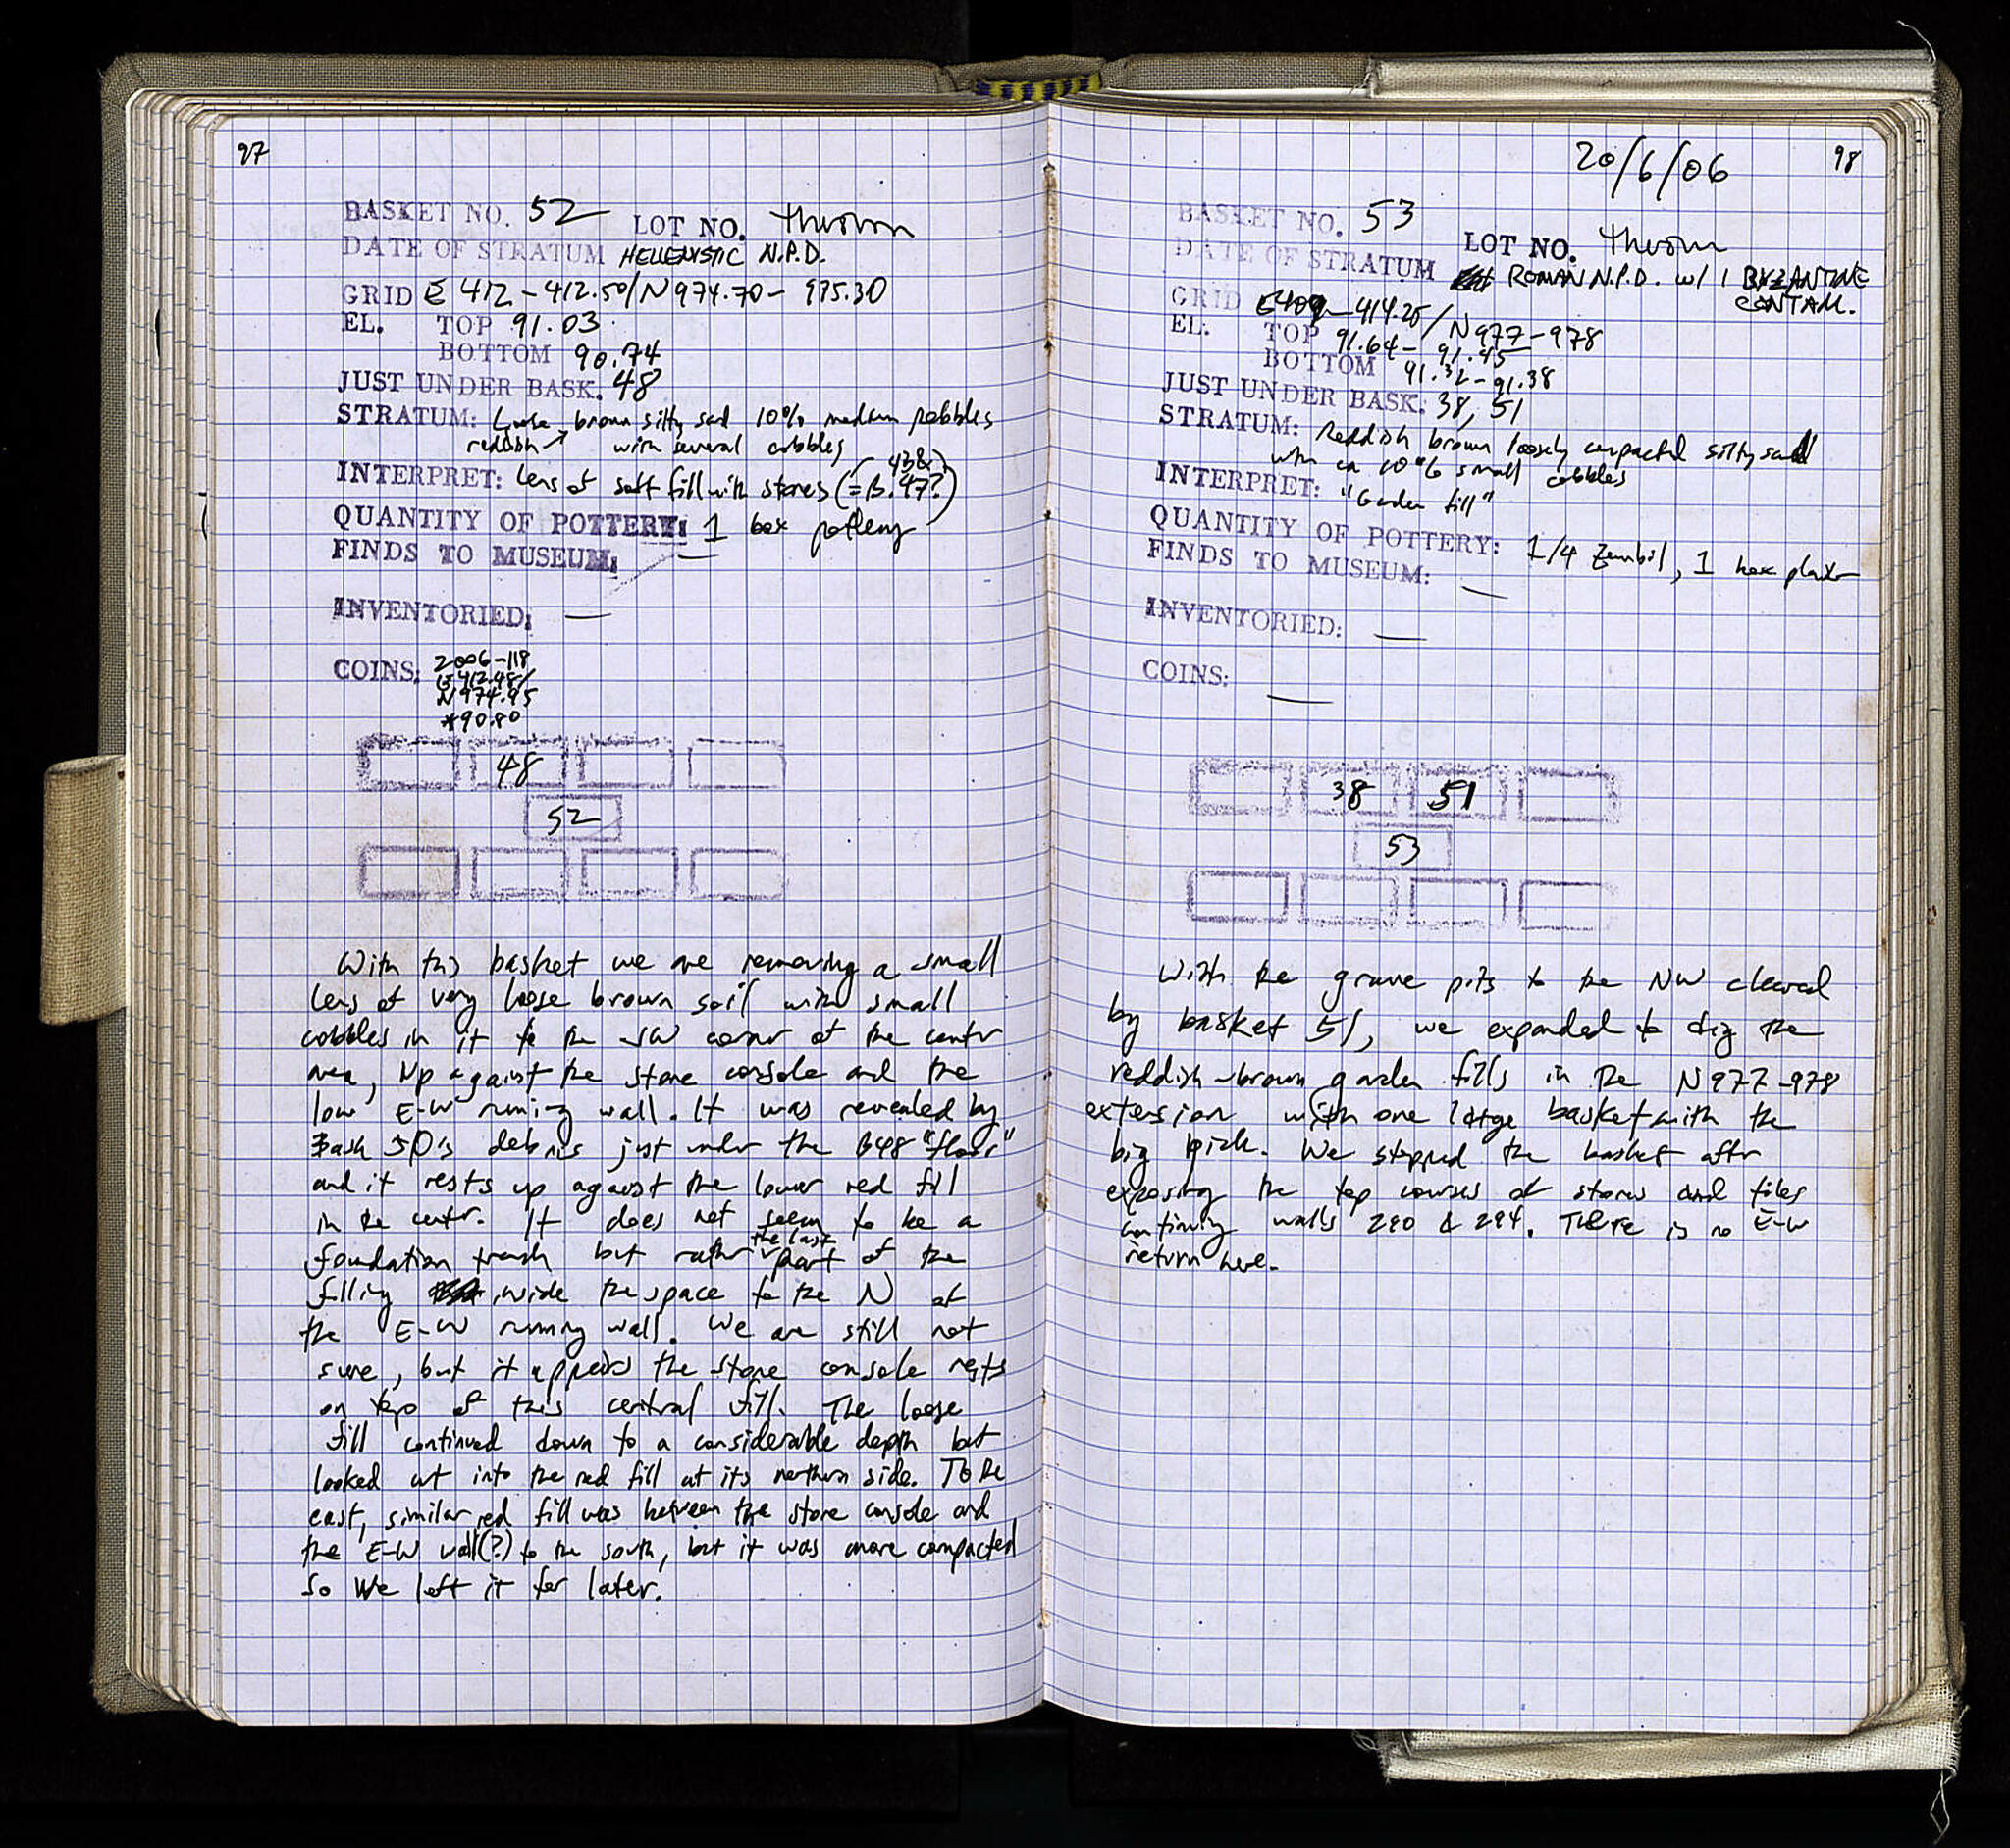 97
BASKET NO. 52 LOT NO. thrown
DATE OF STRATUM HELLENISTIC N.P.D.
GRID E 412-412.50/N974.70-975.30
EL. TOP 91.03
BOTTOM 90.74
JUST UNDER BASK. 48
STRATUM: Loose brown silty sad 10% medium pebbles
reddish with several cobbles
INTERPRET: Lens of soft fill with stones (=B. 43& 47?)
QUANTITY OF POTTERY: 1 box pottery
FINDS TO MUSEUM: —
INVENTORIED: —
COINS: 2006-118
E412.48/
N974.95
*90.80
48
52
With this basket we are removing a small
lens of very loose brown soil with small
cobbles in it to the SW corner of the center
area, up against the stone console and the
low E-W running wall. It was revealed by
Bask 50's debris just under the B48 "floor"
and it rests up against the lower red fill
in the center. It does not seem to be a
foundation trench but rather the last part of the
filling inside the space to the N of
the E-W running wall. We are still not
sure, but it appears the stone console rests
on top of this central fill. The loose
fill continued down to a considerable depth but
looked cut into the red fill at its northern side. To the
east, similar red fill was between the stone console and
the E-W wall(?) to the south, but it was more compacted
so we left it for later.
20/6/06
98
BASKET NO. 53 LOT NO. thrown
DATE OF STRATUM ROMAN N.P.D. w/ 1 BYZANTINE
CONTAM.
GRID E409-414.25/N977-978
EL. TOP 91.64-91.45
BOTTOM 91.32-91.38
JUST UNDER BASK. 38, 51
STRATUM: Reddish brown loosely compacted silty sand
with ca 10% small cobbles
INTERPRET: "Garden fill"
QUANTITY OF POTTERY: 1/4 Zembil, 1 box plaster
FINDS TO MUSEUM: —
INVENTORIED: —
COINS: —
38 51
53
With the grave pits to the NW cleared
by basket 51, we expanded to dig the
reddish-brown garden fills in the N977-978
extension with one large basket with the
big pick. We stopped the basket after
exposing the top courses of stones and tiles
continuing walls 290 & 294. There is no E-W
return here.